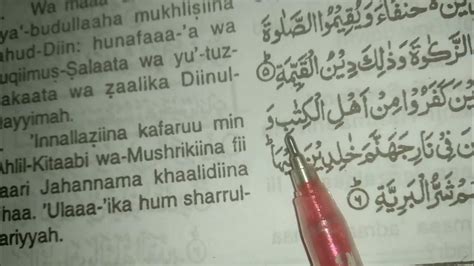 Wa maaa
ya'-budullaaha mukhliṣiina
ahud-Diin: hunafaaa-'a wa
uqiimuṣ-Ṣalaata wa yu'-tuz-
akaata wa ẓaalika Diinul-
ayyimah.
'Innallaẓiina kafaruu min
Ahlil-Kitaabi wa-Mushrikiina fii
aari Jahannama khaalidiina
ihaa. 'Ulaaa-'ika hum sharrul-
ariyyah.
يْنَ ەۙ حُنَفَآءَ وَيُقِيْمُوا الصَّلٰوةَ
الزَّكٰوةَ وَذٰلِكَ دِيْنُ الْقَيِّمَةِ ۝٥
يْنَ كَفَرُوْا مِنْ اَهْلِ الْكِتٰبِ وَ
يْنَ فِيْ نَارِ جَهَنَّمَ خٰلِدِيْنَ فِيْهَا
هُمْ شَرُّ الْبَرِيَّةِ ۝٦